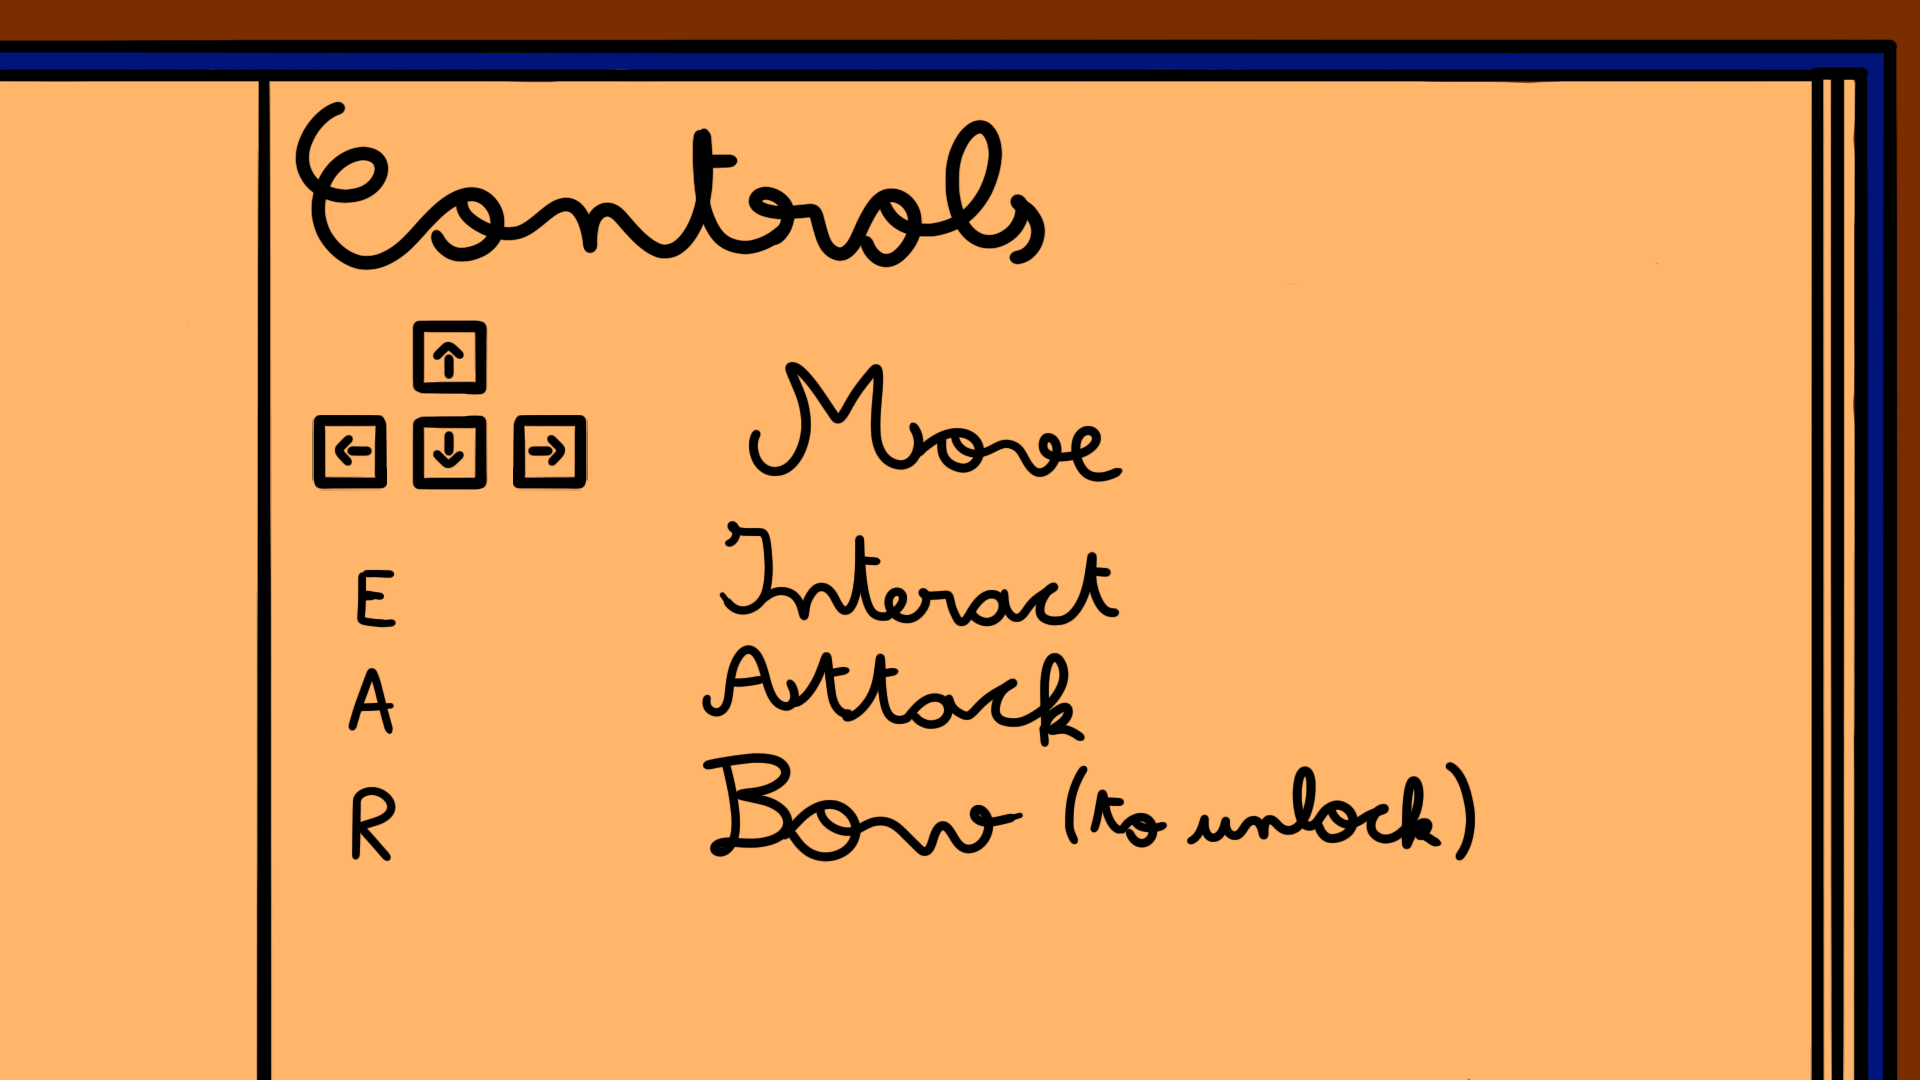 Controls
↑
← ↓ → Move
E Interact
A Attack
R Bow (to unlock)